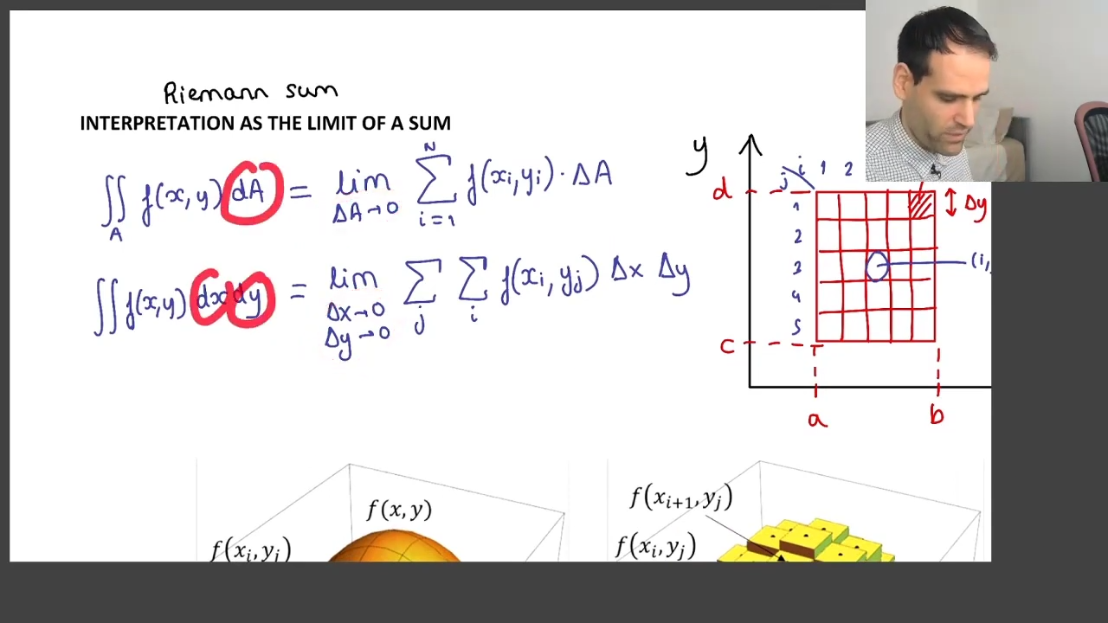 Riemann sum
INTERPRETATION AS THE LIMIT OF A SUM
∬_A f(x,y) dA = lim_{ΔA→0} Σ_{i=1}^{N} f(x_i,y_i)·ΔA
∬ f(x,y) dxdy = lim_{Δx→0 Δy→0} Σ_j Σ_i f(x_i,y_j) Δx Δy
y
i 1 2
j
d
1
Δy
2
3
(i,
4
5
c
a
b
f(x,y)
f(x_i,y_j)
f(x_{i+1},y_j)
f(x_i,y_j)